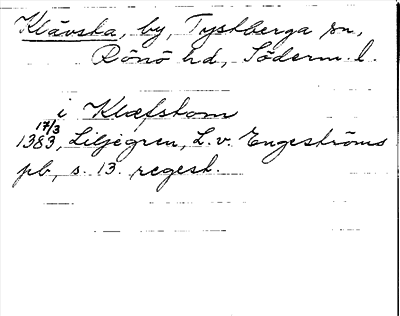 Klävska, by, Tystberga sn,
Rönö hd, Söderm. l.
i Klæfskom
1383 17/3, Liljegren, L. v. Engeströms
pb, s. 13. regest.